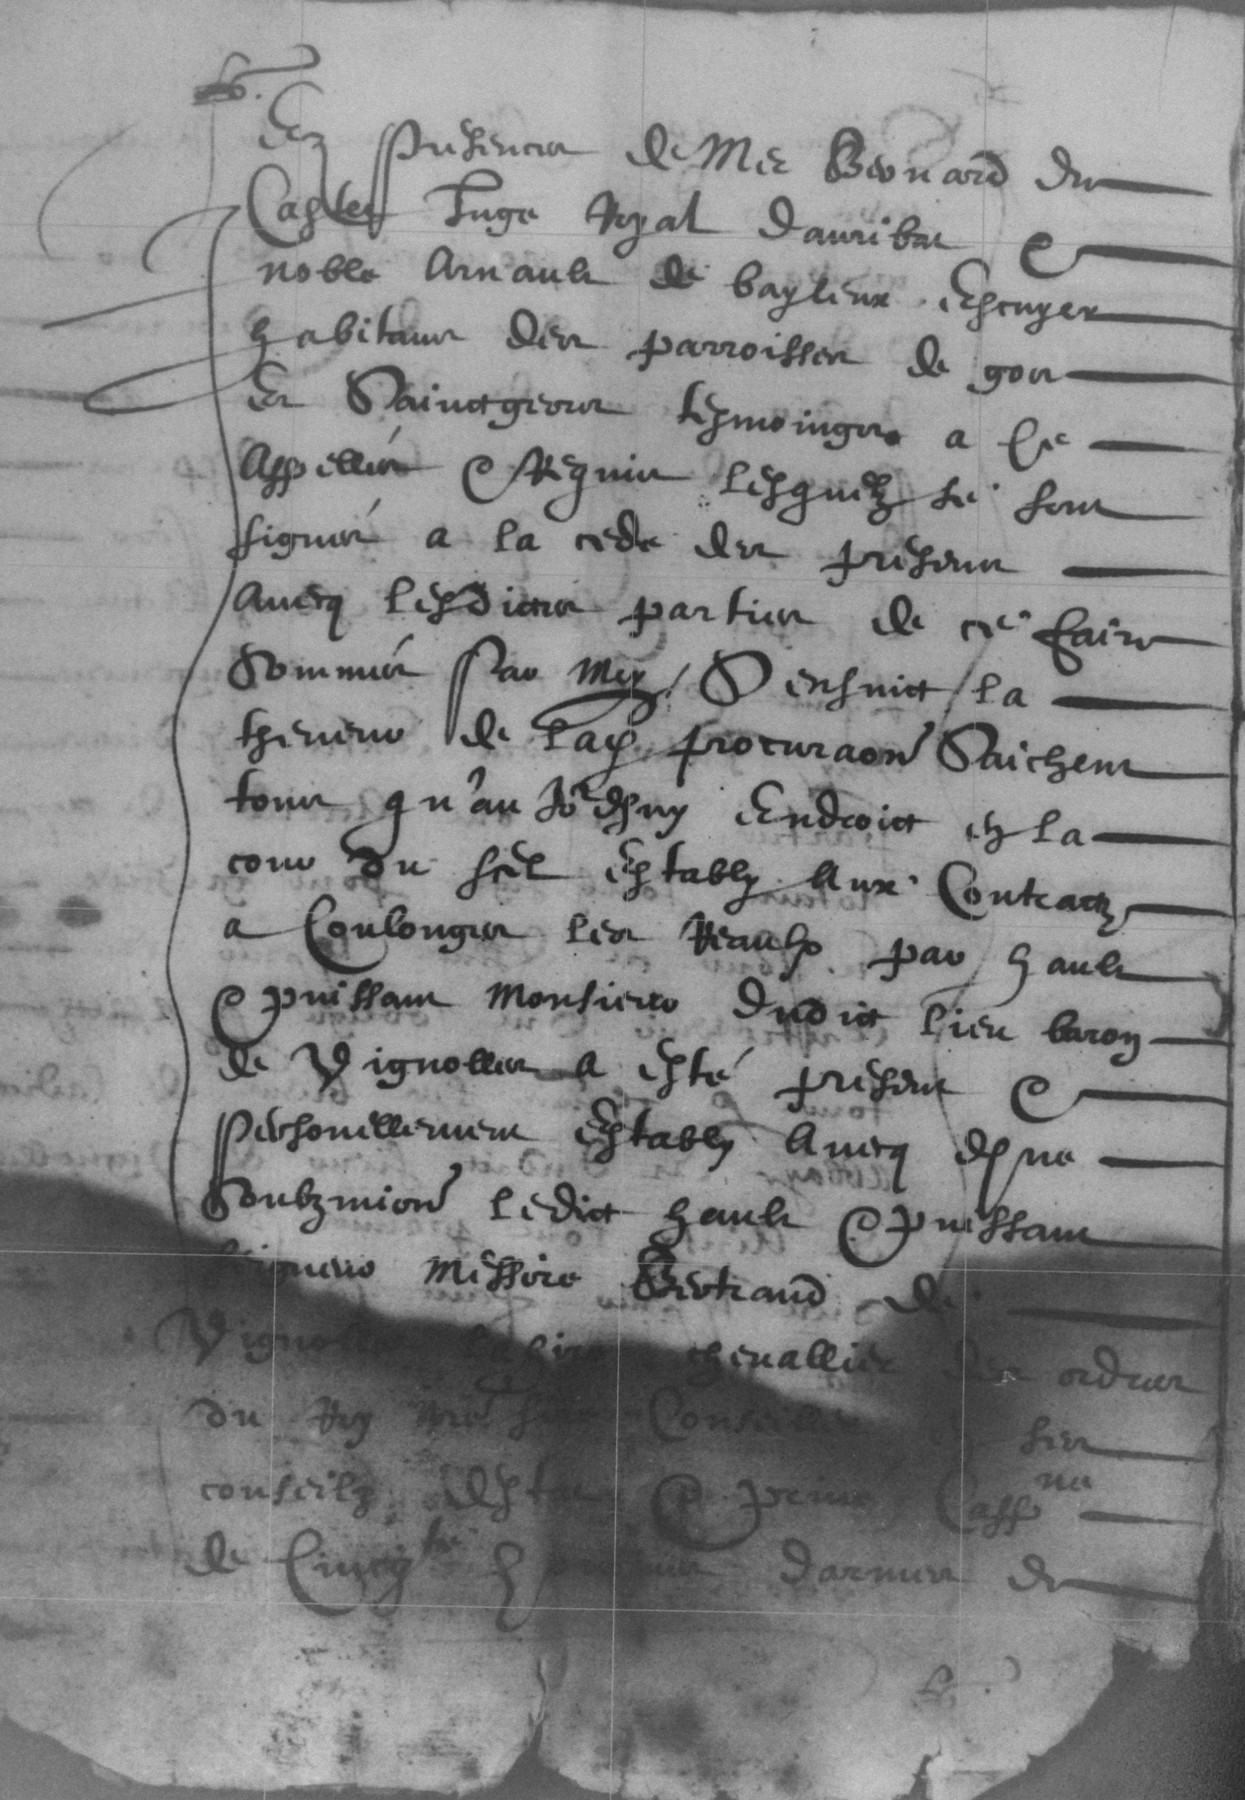 En presences de Mee Bernard du
Castes Juge Royal Dauribat &
noble Arnault de baylenx Escuyer
habitans des parroisses de gos
et Sainctgeours tesmoingns a ce
Appellés & Requis lesquelz se sont
signés a la cede des presens
Avecq lesdictes parties de ce faire
Sommés par Moy Sensuict la
theneur de lad procuraon Saichent
tous qu'au Jourdhuy Endroict en la
cour du seel Estably Aux Contractz
a Coulonges les Reaulx par hault
& puissant Monsieur dudict lieu baron
de Vignolles a esté present &
personellement Estably Avecq deue
Soubzmion ledict hault & puissant
seigneur Messire Bertrand de
Vignolles chevallier des ordres
du Roy nre sire Conseiller ses
conseilz destat & privé Cappne
de Cincqte hommes darmes de